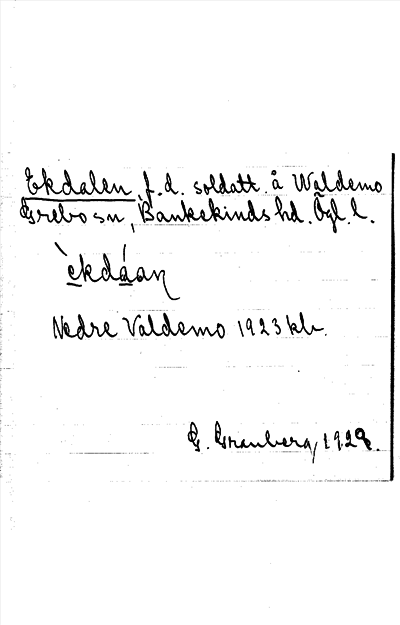 Ekdalen f.d. soldatt. å Waldemo
Grebo sn, Bankekinds hd. Ögl. l.
èkdáaṉ
Nedre Valdemo 1923 kb.
G. Granberg, 1928.